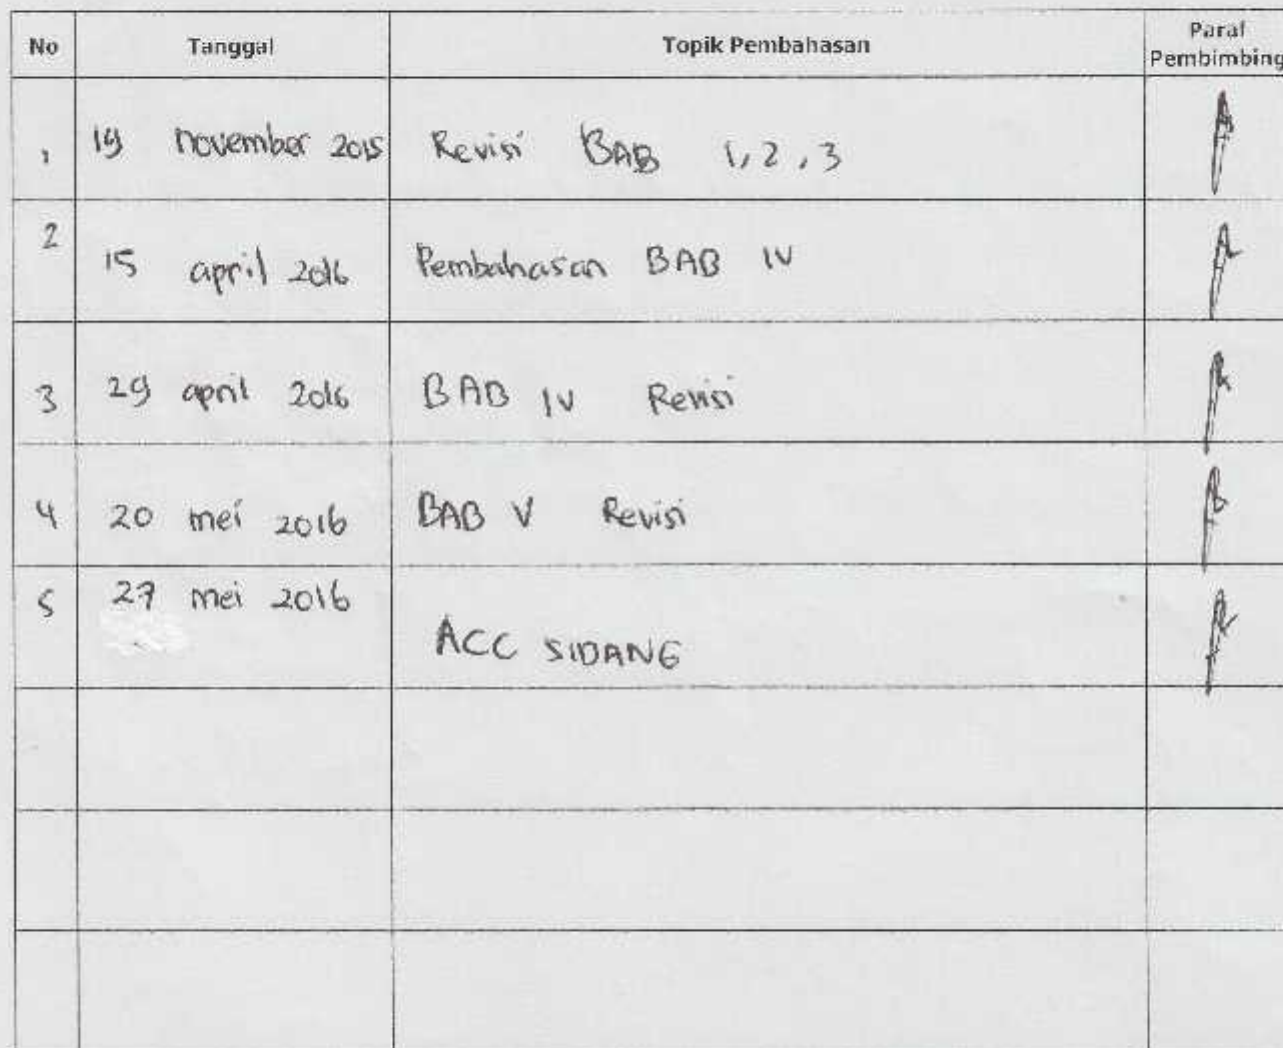 No Tanggal Topik Pembahasan Paraf Pembimbing
1 19 november 2015 Revisi BAB 1, 2, 3
2 15 april 2016 Pembahasan BAB IV
3 29 april 2016 BAB IV Revisi
4 20 mei 2016 BAB V Revisi
5 27 mei 2016 ACC SIDANG